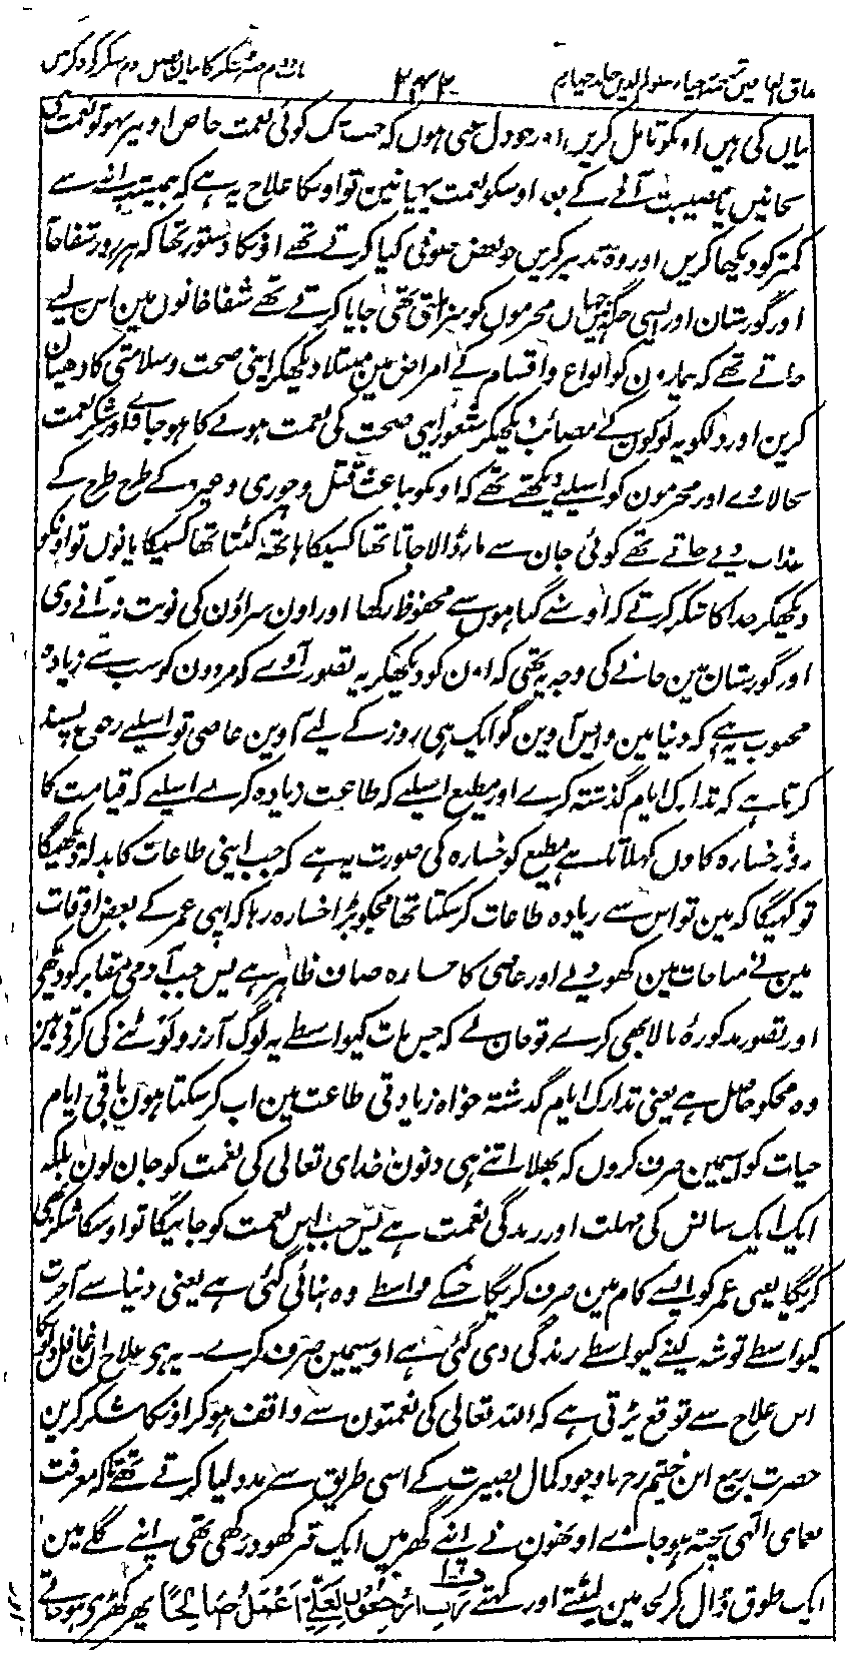 مذاق العارفین ترجمہ احیاء علوم الدین جلد چہارم ۲۴۲ باب دوم صبر و شکر کا بیان فصل دوم شکر کے ذکر میں
بیان کی ہیں اونکو تامل کریں اور جو دل غبی ہوں کہ جب تک کوئی نعمت خاص اوپر نہو تو نعمت ہی
نجانیں یا مصیبت آنے کے بعد اوسکو نعمت پہچانین تو اوسکا علاج یہ ہے کہ ہمیشہ اپنے سے
کمتر کو دیکھا کریں اور وہ تدبیر کریں جو بعض صوفی کیا کرتے تھے اونکا دستور تھا کہ ہر روز شفاخانہ
اور گورستان اور ایسی جگہ میں جہاں مجرموں کو سزا ملتی تھی جایا کرتے تھے شفاخانوں مین اس لیے
جاتے تھے کہ بیمارون کو انواع و اقسام کے امراض مین مبتلا دیکھکر اپنی صحت و سلامتی کا دھیان
کرین اور دلکو یہ لوگون کے مصائب دیکھکر شعور اپنی صحت کی نعمت ہونے کا ہو جاے اور شکر نعمت
بجالاوے اور مجرمون کو اسلیے دیکھتے تھے کہ اونکو بباعث قتل و چوری وغیرہ کے طرح طرح کے
عذاب دیے جاتے تھے کوئی جان سے مار ڈالا جاتا تھا کسیکا ہاتھ کٹتا تھا کسیکا پانوں تو اونکو
دیکھکر خدا کا شکر کرتے کہ اوسنے گناہوں سے محفوظ رکھا اور اون سزاؤن کی نوبت نہ آنے دی
اور گورستان مین جانے کی وجہ یہ تھی کہ اون کو دیکھکر یہ تصور آوے کہ مردون کو سب سے زیادہ
محبوب یہ ہے کہ دنیا مین واپس آوین گو ایک ہی روز کے لیے آوین عاصی تو اسلیے رجوع پسند
کرتا ہے کہ تدارک ایام گذشتہ کرے اور مطیع اسلیے کہ طاعت زیادہ کرے اسلیے کہ قیامت کا
روز خسارہ کا دن کہلاتا ہے مطیع کو خسارہ کی صورت یہ ہے کہ جب اپنی طاعات کا بدلہ دیکھیگا
تو کہیگا کہ مین تو اس سے زیادہ طاعات کر سکتا تھا مجکو بڑا خسارہ رہا کہ اپنی عمر کے بعض اوقات
مین نے مباحات مین کھو دیے اور عاصی کا خسارہ صاف ظاہر ہے پس جب آدمی مقابر کو دیکھے
اور تصور مذکورۂ بالا بھی کرے تو جان لے کہ جس بات کیواسطے یہ لوگ آرزو لوٹنے کی کرتے ہین
وہ مجکو حاصل ہے یعنی تدارک ایام گذشتہ خواہ زیادتی طاعت مین اب کر سکتا ہون باقی ایام
حیات کو اسیمین صرف کروں کہ بھلا اتنے ہی دنون خدای تعالی کی نعمت کو جان لون بلکہ
ایک ایک سانس کی مہلت اور زندگی نعمت ہے پس جب اس نعمت کو جانیگا تو اوسکا شکر بھی
کریگا یعنی عمر کو ایسے کام مین صرف کریگا جسکے واسطے وہ بنائی گئی ہے یعنی دنیا سے آخرت
کیواسطے توشہ لینے کیواسطے زندگی دی گئی ہے اوسیمین صرف کرے۔ یہ ہی علاج ان غافل دلونکا
اس علاج سے توقع پڑتی ہے کہ اللہ تعالی کی نعمتون سے واقف ہوکر اونکا شکر کرین
حضرت ربیع ابن خثیم رح باوجود کمال بصیرت کے اسی طریق سے مدد لیا کرتے تھے تاکہ معرفت
نعمای الٰہی پختہ ہو جاوے اونھون نے اپنے گھر میں ایک قبر کھود رکھی تھی اپنے گلے مین
ایک طوق ڈال کر لحد مین لیٹتے اور کہتے رَبِّ ارْجِعُوْنِ لَعَلِّیْ اَعْمَلُ صَالِحًا پھر کھڑے ہوتے